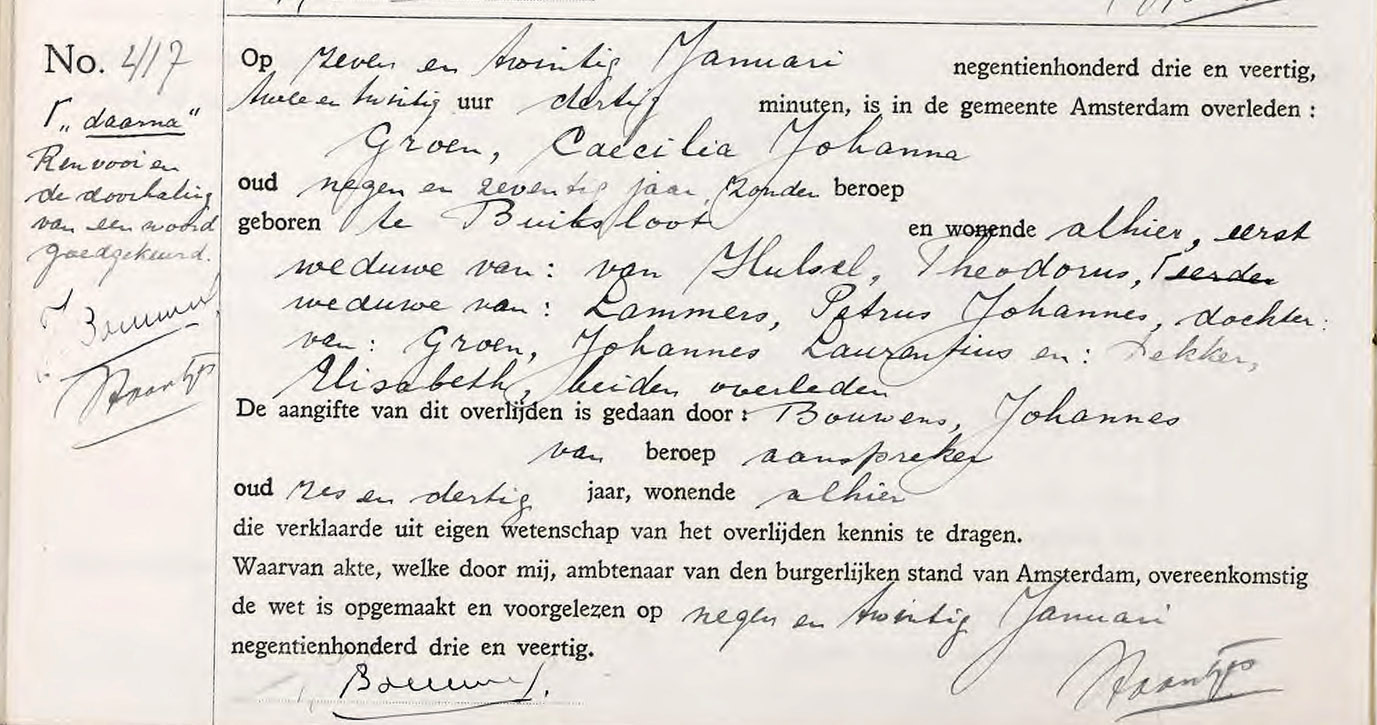 No. 2/17
Op zeven en twintig Januari negentienhonderd drie en veertig,
twee en twintig uur dertig minuten, is in de gemeente Amsterdam overleden :
Groen, Caecilia Johanna
oud negen en zeventig jaar, zonder beroep
geboren te Buiksloot en wonende alhier, eerst
weduwe van: van Hulsel, Theodorus, Γ eerder
weduwe van: Lammers, Petrus Johannes, dochter
van: Groen, Johannes Laurentius en: Dekker,
Elisabeth, beiden overleden
De aangifte van dit overlijden is gedaan door : Bouwens, Johannes
van beroep aanspreker
oud zes en dertig jaar, wonende alhier
die verklaarde uit eigen wetenschap van het overlijden kennis te dragen.
Waarvan akte, welke door mij, ambtenaar van den burgerlijken stand van Amsterdam, overeenkomstig
de wet is opgemaakt en voorgelezen op negen en twintig Januari
negentienhonderd drie en veertig.
Γ „daarna"
Renvooi en
de doorhaling
van een woord
goedgekeurd.